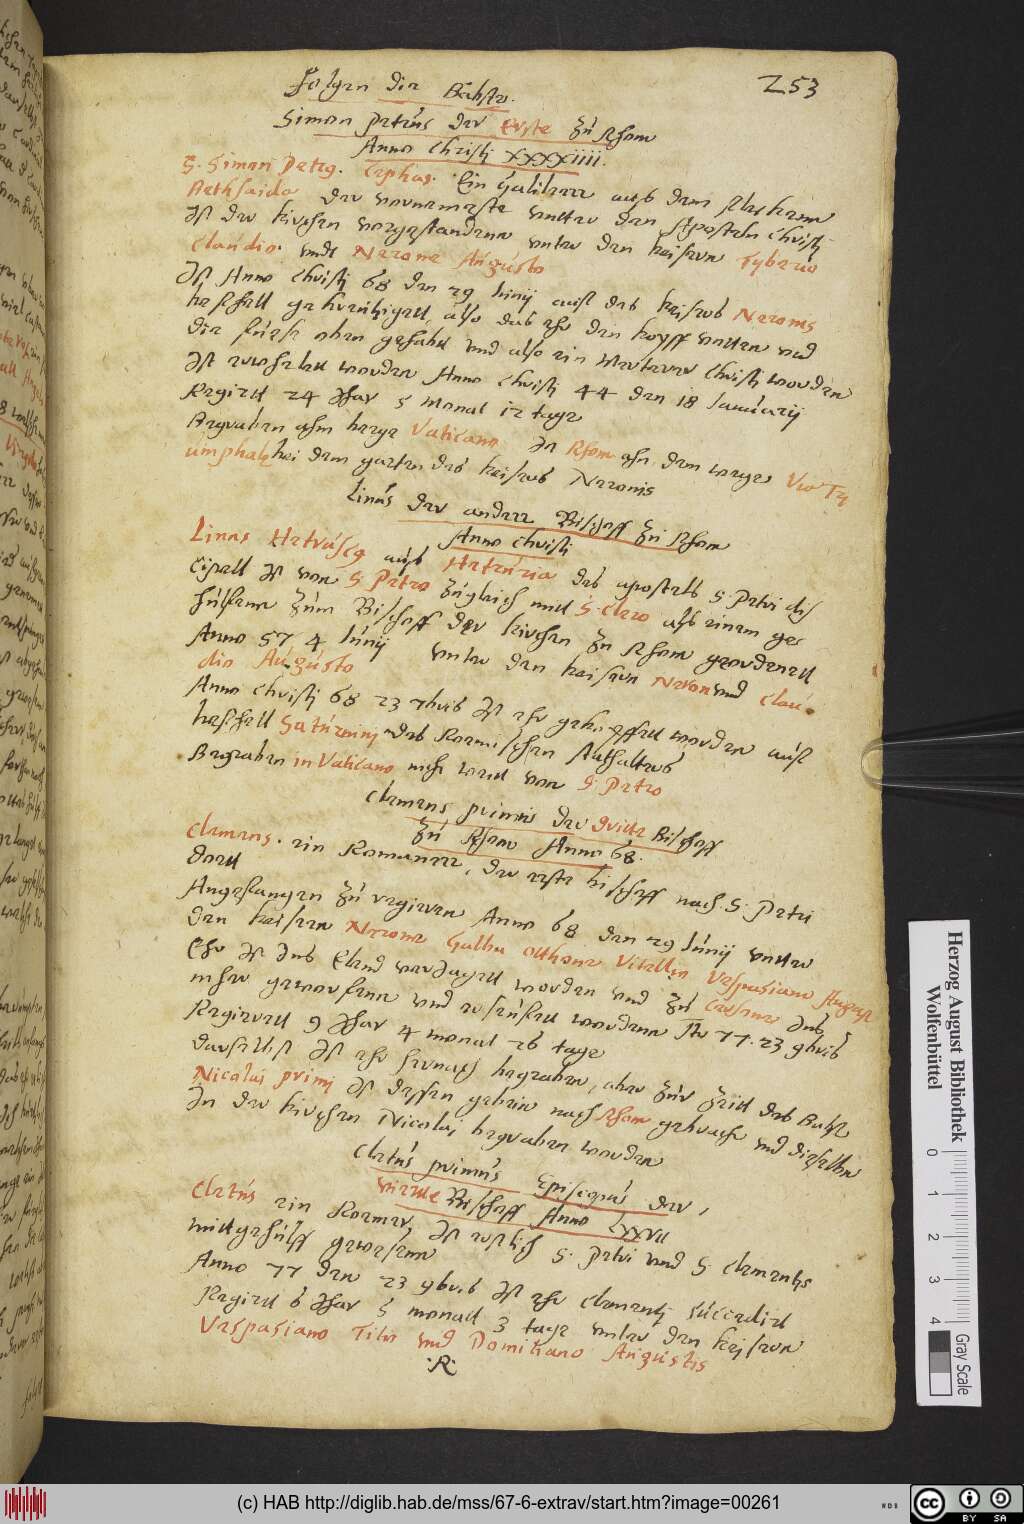 253
Folgen die Bäbste.
Simon Petrus der Erste zu Rhom
Anno Christi XXXXIIII.
S. Simon Petrg. Cephas. Ein Galileer auß dem flecken
Bethsaida der vornemeste vntter den Aposteln Christi
Ist der kirchen vorgestanden vnter den keisern Tyberio
Claudio. vndt Nerone Augusto
Ist Anno Christi 68 den 29 Iunij auß des keisers Neronis
beschell gekreutziget, also das ehr den kopff vntten vnd
die fuesse oben gehabt vnd also ein Marterer Christi worden
Ist erwehlett worden Anno Christi 44 den 18 Ianuarij
Regirtt 24 Jhar 5 Monat 12 tage
Begraben ahm berge Vaticano In Rhom ahn dem wege Via Tri
umphali bei dem garten des keisers Neronis
Linus der andere Bischoff zu Rhom
Anno Christi
Linus Hetruscg auß Hetruria des apostels S. Petri dis
cipell Ist von S. Petro zugleich mitt S. Cleto alß einem ge
hülfenn zum Bischoff der kirchen zu Rhom geordenett
Anno 57 4 Iunij vnter den keisern Neron vnd Clau
dio Augusto
Anno Christi 68 23 7bris Ist ehr gekopffett worden auß
beschell Saturnini des Romischen Stathalters
Begraben in Vaticano nicht weitt von S. Petro
Clemens primus der dritte Bischoff
zu Rhom Anno 68.
Clemens. ein Romaner, der erste bischoff nach S. Petri
dott
Angefangen zu regieren Anno 68 den 29 Iunij vntter
den keisern Nerone Galba Otthone Vitellio Vespasiano August
Ehr Ist Ins Elend veriagett worden vnd zu Cersona Ins
mehr geworfenn vnd erseuffett wordenn Ao 77. 23 9bris
Regierett 9 Jhar 4 monat 26 tage
Daselbst Ist ehr hernach begraben, aber zur zeitt des Babst
Nicolai primj Ist dessen gebein nach Rhom gebracht vnd dieselben
In der kirchen Nicolai begraben worden
Cletus primus Episcopus der,
viertte Bischoff Anno LXXVII
Cletus ein Romer, Ist erstlich S. Petri vnd S. Clementis
mittgehülff gewesenn
Anno 77 den 23 9bris Ist ehr Clementj succedirt
Regirtt 6 Jhar 5 monatt 3 tage vnter den keisern
Vespasiano Tito vnd Domitiano Augustis
·R·
Herzog August Bibliothek
Wolfenbüttel
0 1 2 3 4
Gray Scale
(c) HAB http://diglib.hab.de/mss/67-6-extrav/start.htm?image=00261
WDB
cc BY SA